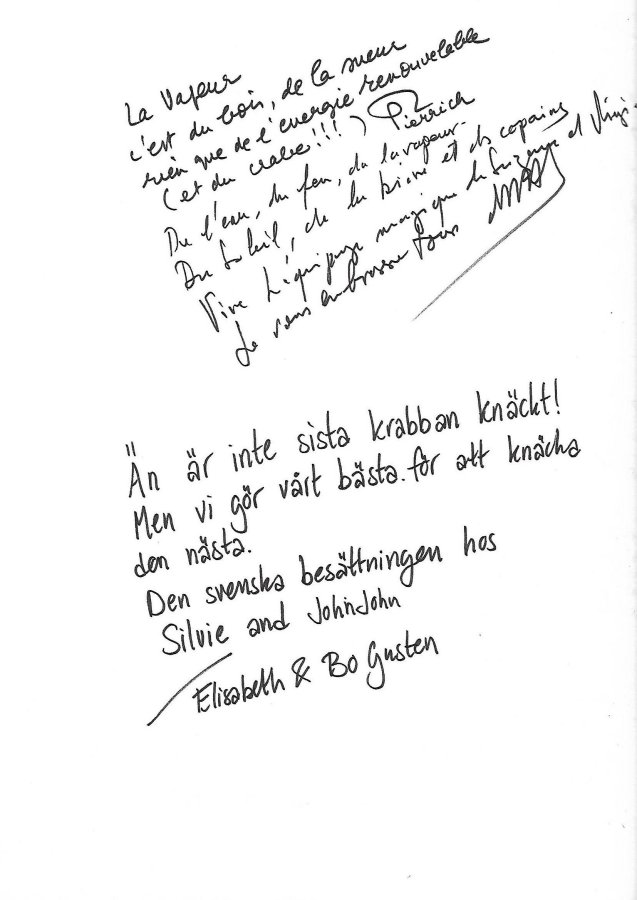 La Vapeur
c'est du bois, de la sueur
rien que de l'énergie renouvelable
(et du crabe!!!) Pierrich
De l'eau, du feu, de la vapeur.
Du Soleil, de la bière et des copains
Vive L'équipage magique de Suzanne et
Je vous embrasse tous
Än är inte sista krabban knäckt!
Men vi gör vårt bästa för att knäcka
den nästa.
Den svenska besättningen hos
Silvie and JohnJohn
Elisabeth & Bo Gusten